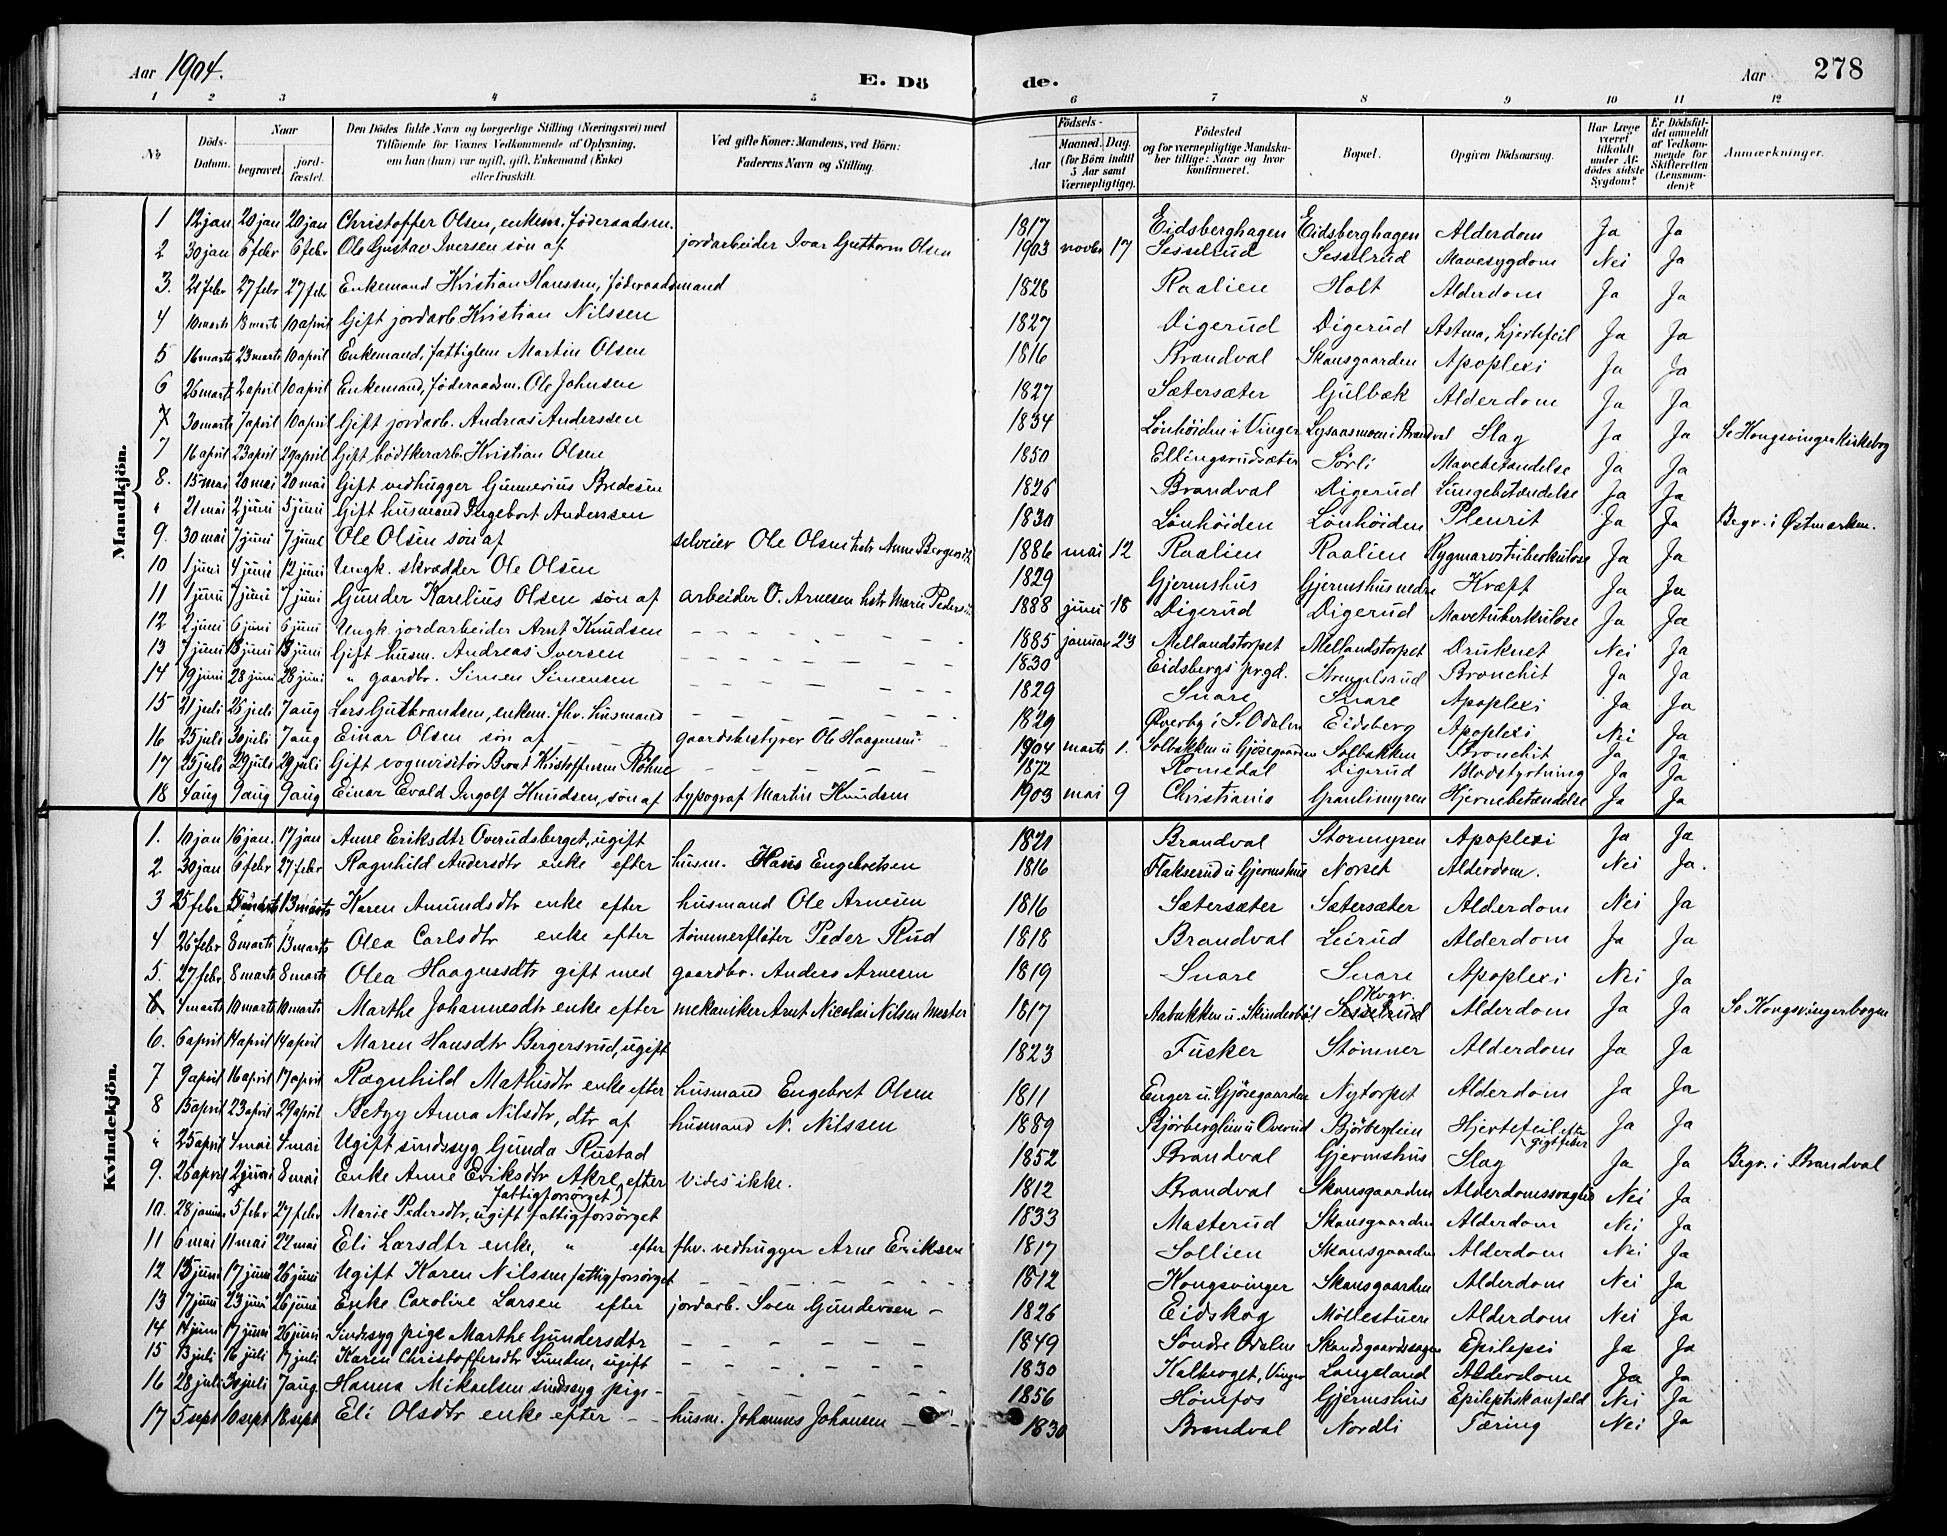 Aar 1904. E. Dö de. Aar 278
1 2 3 4 5 6 7 8 9 10 11 12
No. Döds-Datum. Naar begravet. jordfæstet. Den Dödes fulde Navn og borgerlige Stilling (Næringsvei) med Tilföiende for Voxnes Vedkommende af Oplysning, om han (hun) var ugift, gift, Enkemand (Enke) eller fraskilt. Ved gifte Koner: Mandens, ved Börn: Faderens Navn og Stilling. Födsels- Aar Maaned. Dag. (for Börn indtil 5 Aar samt Værnepligtige). Födested og for værnepligtige Mandskaber tillige: Naar og hvor konfirmeret. Bopæl. Opgiven Dödsaarsag. Har Læge været tilkaldt under Afdödes sidste Sygdom? Er Dödsfaldet anmeldt af Vedkommende for Skifteretten (Lensmanden)? Anmærkninger.
Mandkjön.
1 12 jan 20 jan 20 jan Christoffer Olsen, enkem. föderaadsm. 1817 Eidsberghagen Eidsberghagen Alderdom Ja Ja
2 30 jan 6 febr 6 febr Ole Gustav Iversen sön af jordarbeider Ivar Guttorm Olsen 1903 novbr 17 Sesselrud Sesselrud Mavesygdom Nei Ja
3. 21 febr 27 febr 27 febr Enkemand Kristian Hanssen, föderaadsmand 1828 Raalien Holt Alderdom Ja Ja
4 10 marts 18 marts 10 april Gift jordarb. Kristian Nilssen 1827 Digerud Digerud Astma, hjertefeil Ja Ja
5 16 marts 23 marts 10 april Enkemand, fattiglem Martin Olsen 1816 Brandval Skansgaarden Apoplexi Ja Ja
6 26 marts 2 april 10 april Enkemand, föderaadsm. Ole Johnsen 1827 Sætersæter Gulbæk Alderdom Ja Ja
7 30 marts 7 april 10 april Gift jordarb. Andreas Anderssen 1834 Lönhöiden i Vinger Lysaasmoen i Brandval Slag Ja Ja Se Kongsvinger kirkebog
7 16 april 23 april 29 april Gift bödtkerarb. Kristian Olsen 1850 Ellingsrudsæter Sörli Mavebetændelse Ja Ja
8. 15 mai 20 mai 20 mai Gift vedhugger Gunnerius Bredesen 1826 Brandval Digerud Lungebetændelse Ja Ja
" 21 mai 2 juni 5 juni Gift husmand Ingebort Andersen 1830 Lönhöiden Lönhöiden Pleurit Ja Ja Begr. i Østmarken.
9. 30 mai 7 juni 7 juni Ole Olsen sön af selveier Ole Olsen hstr Anne 1886 mai 12 Raalien Raalien Rygmarvstuberkulose Ja Ja
10 1 juni 4 juni 12 juni Ungk. skrædder Ole Olsen 1829 Gjermshus Gjermshus nedre Kræft Ja Ja
11 1 juni 7 juni 7 juni Gunder Karelius Olsen sön af arbeider O. Arnesen hstr Marie 1888 juni 18 Digerud Digerud Mavetuberkulose Ja Ja
12 2 juni 6 juni 6 juni Ungk. jordarbeider Arnt Knudsen 1885 januar 23 Mellandstorpet Mellandstorpet Druknet Nei Ja
13 7 juni 13 juni 13 juni Gift husm. Andreas Iversen 1830 Eidsbergs prgd. Strengelsrud Bronchit Ja Ja
14 19 juni 28 juni 28 juni " gaardbr. Simen Simensen 1829 Snare Snare Apoplexi Ja Ja
15 21 juli 26 juli 7 aug Lars Gulbrandsen, enkem. fhv. husmand 1829 Øverby i S. Odalen Eidsberg Apoplexi Nei Ja
16 25 juli 30 juli 7 aug Einar Olsen sön af gaardsbestyrer Ole Haagensen 1904 marts 1. Solbakken u Gjösegaarden Solbakken Bronchit Ja Ja
17 25 juli 29 juli 29 juli Gift vognvisitör Bernt Kristoffersen Röhne 1872 Romedal Digerud Blodstyrtning Ja Ja
18 4 aug 9 aug 9 aug Einar Evald Ingolf Knudsen, sön af typograf Martin Knudsen 1903 mai 9 Christiania Granlimyren Hjernebetændelse Ja Ja
Kvindekjön.
1. 10 jan 16 jan. 17 jan Anne Eriksdtr Overudsberget, ugift 1821 Brandval Stormyren Apoplexi Ja Ja
2 30 jan 6 febr 27 febr Ragnhild Andersdtr enke efter husm. Hans Engebretsen 1816 Flakserud u Gjermshus Norset Alderdom. Nei Ja.
3 25 febr 5 marts 13 marts Karen Amundsdtr enke efter husmand Ole Arnesen 1816 Sætersæter Sætersæter Alderdom Nei Ja
4 26 febr 8 marts 13 marts Olea Carlsdtr enke efter tömmerflöter Peder Rud 1818 Brandval Leirud Alderdom Ja Ja
5. 27 febr 8 marts 8 marts Olea Haagensdtr gift med gaardbr. Anders Arnesen 1819 Snare Snare Apoplexi Nei Ja
6 4 marts 10 marts 10 marts Marthe Johannesdtr enke efter mekaniker Arnt Nicolai Nilsen Møster 1817 Aabakken u. Skinderböl Kogr. Sesselrud Alderdom Ja Ja Se Kongsvingerbogen
6. 6 april 14 april 14 april Maren Hansdtr Bergersrud, ugift 1823 Fusker Stömner Alderdom Ja Ja
7 9 april 16 april 17 april Ragnhild Mathisdtr enke efter husmand Engebret Olsen 1811 Enger u. Gjösegaarden Nytorpet Alderdom Ja Ja
8 15 april 23 april 29 april Betzy Anna Nilsdtr, dtr af husmand N. Nilssen 1889 Bjórberglein u Overud Björberglein Hjertefeil efter gigtfeber Ja Ja
" 25 april 4 mai 4 mai Ugift sindssyg Gunda Rustad 1852 Brandval Gjermshus Slag Ja Ja Begr. i Brandval
9. 26 april 2 8 mai Enke Anne Eriksdtr Akre, efter fattigforsörget) Vides ikke. 1812 Brandval Skansgaarden Alderdomssvaghed Nei Ja
10. 28 januar 5 febr 27 febr Marie Pedersdtr, ugift fattigforsörget 1833 Masterud Skansgaarden Alderdom Nei Ja
11 6 mai 11 mai 22 mai Eli Larsdtr enke, " efter fhv. vedhugger Arne Eriksen 1817 Sollien Skansgaarden Alderdom Nei Ja
12 13 juni 17 juni 26 juni Ugift Karen Nilssen fattigforsörget 1812 Kongsvinger Skansgaarden Alderdom Nei Ja
13 17 juni 23 juni 26 juni Enke Caroline Larsen efter jordarb. Sven Gundersen 1826 Eidskog Möllestuen Alderdom Nei Ja
14 14 juni 17 juni 26 juni Sindssyg pige Marthe Gundersdtr 1849 Söndre Odalen Skansgaardsvagen Epilepsi Ja Ja
15 13 juli 16 juli 17 juli Karen Christoffersdtr Linden, ugift 1830 Kalberget, Vinger Langeland Alderdom Ja Ja
16 28 juli 30 juli 7 aug. Hanna Mikaelsen sindssyg pige 1856 Hönefos Gjermshus Epileptisk anfald Nei Ja
17 5 sept 10 sept 18 sept Eli Olsdtr enke efter husm. Johannes Johansen 1830 Brandval Nordli Tæring Nei Ja